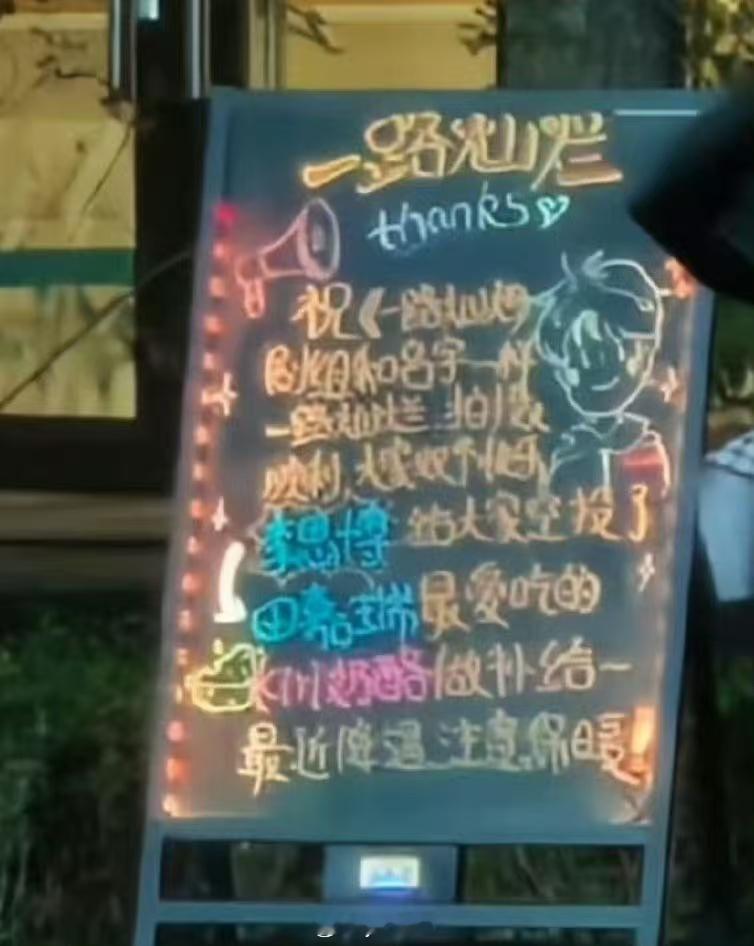 一路灿烂
thanks
祝《一路灿烂
剧组和名字一样
一路灿烂 拍摄
顺利,大家收个
李思博 给大家空投了
田嘉瑞最爱吃的
奶酪做补给~
最近降温,注意保暖